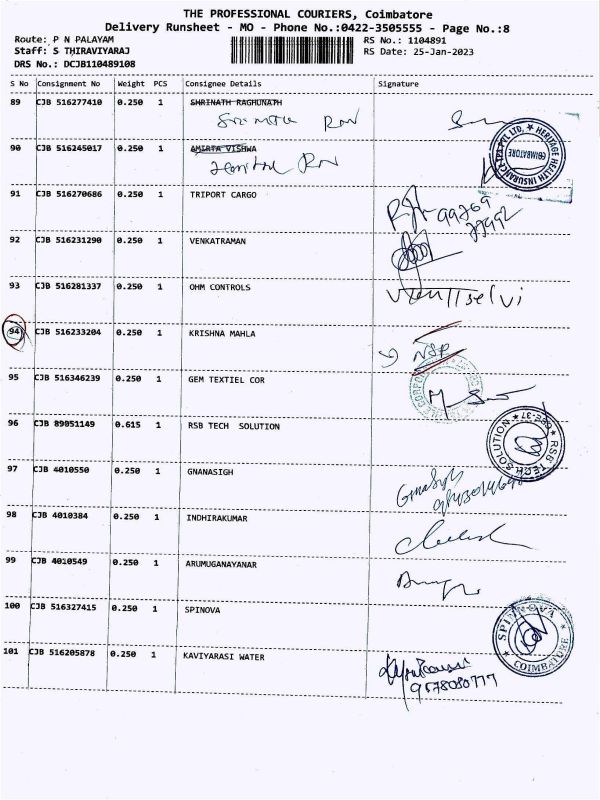 THE PROFESSIONAL COURIERS, Coimbatore
Delivery Runsheet - MO - Phone No.:0422-3505555 - Page No.:8
Route: P N PALAYAM
RS No.: 1104891
Staff: S THIRAVIYARAJ
RS Date: 25-Jan-2023
DRS No.: DCJB110489108
S No Consignment No Weight PCS Consignee Details Signature
89 CJB 516277410 0.250 1 SHRINATH RAGHUNATH
90 CJB 516245017 0.250 1 AMIRTA VISHWA
HERITAGE HEALTH INSURANCE TPA PVT LTD. COIMBATORE
91 CJB 516270686 0.250 1 TRIPORT CARGO
99769
77992
92 CJB 516231290 0.250 1 VENKATRAMAN
93 CJB 516281337 0.250 1 OHM CONTROLS
94 CJB 516233204 0.250 1 KRISHNA MAHLA
NSP
95 CJB 516346239 0.250 1 GEM TEXTIEL COR
96 CJB 89051149 0.615 1 RSB TECH SOLUTION
RSB TECH SOLUTION CBE-37
97 CJB 4010550 0.250 1 GNANASIGH
98 CJB 4010384 0.250 1 INDHIRAKUMAR
99 CJB 4010549 0.250 1 ARUMUGANAYANAR
100 CJB 516327415 0.250 1 SPINOVA
SPINNOVA COIMBATORE
101 CJB 516205878 0.250 1 KAVIYARASI WATER
9578080777